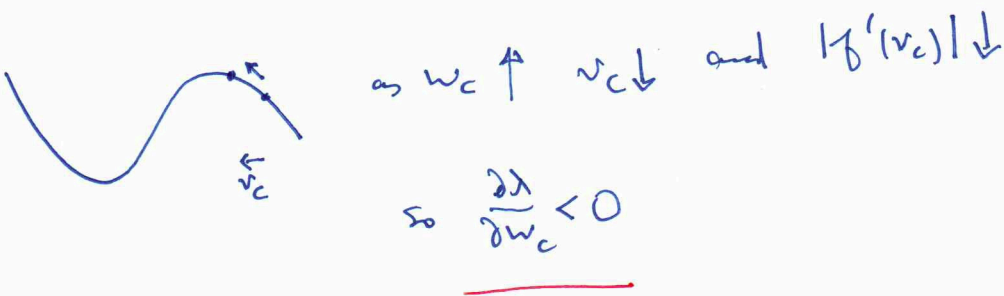 as w_c ↑ v_c ↓ and |f'(v_c)| ↓
← v_c
so ∂λ/∂w_c < 0